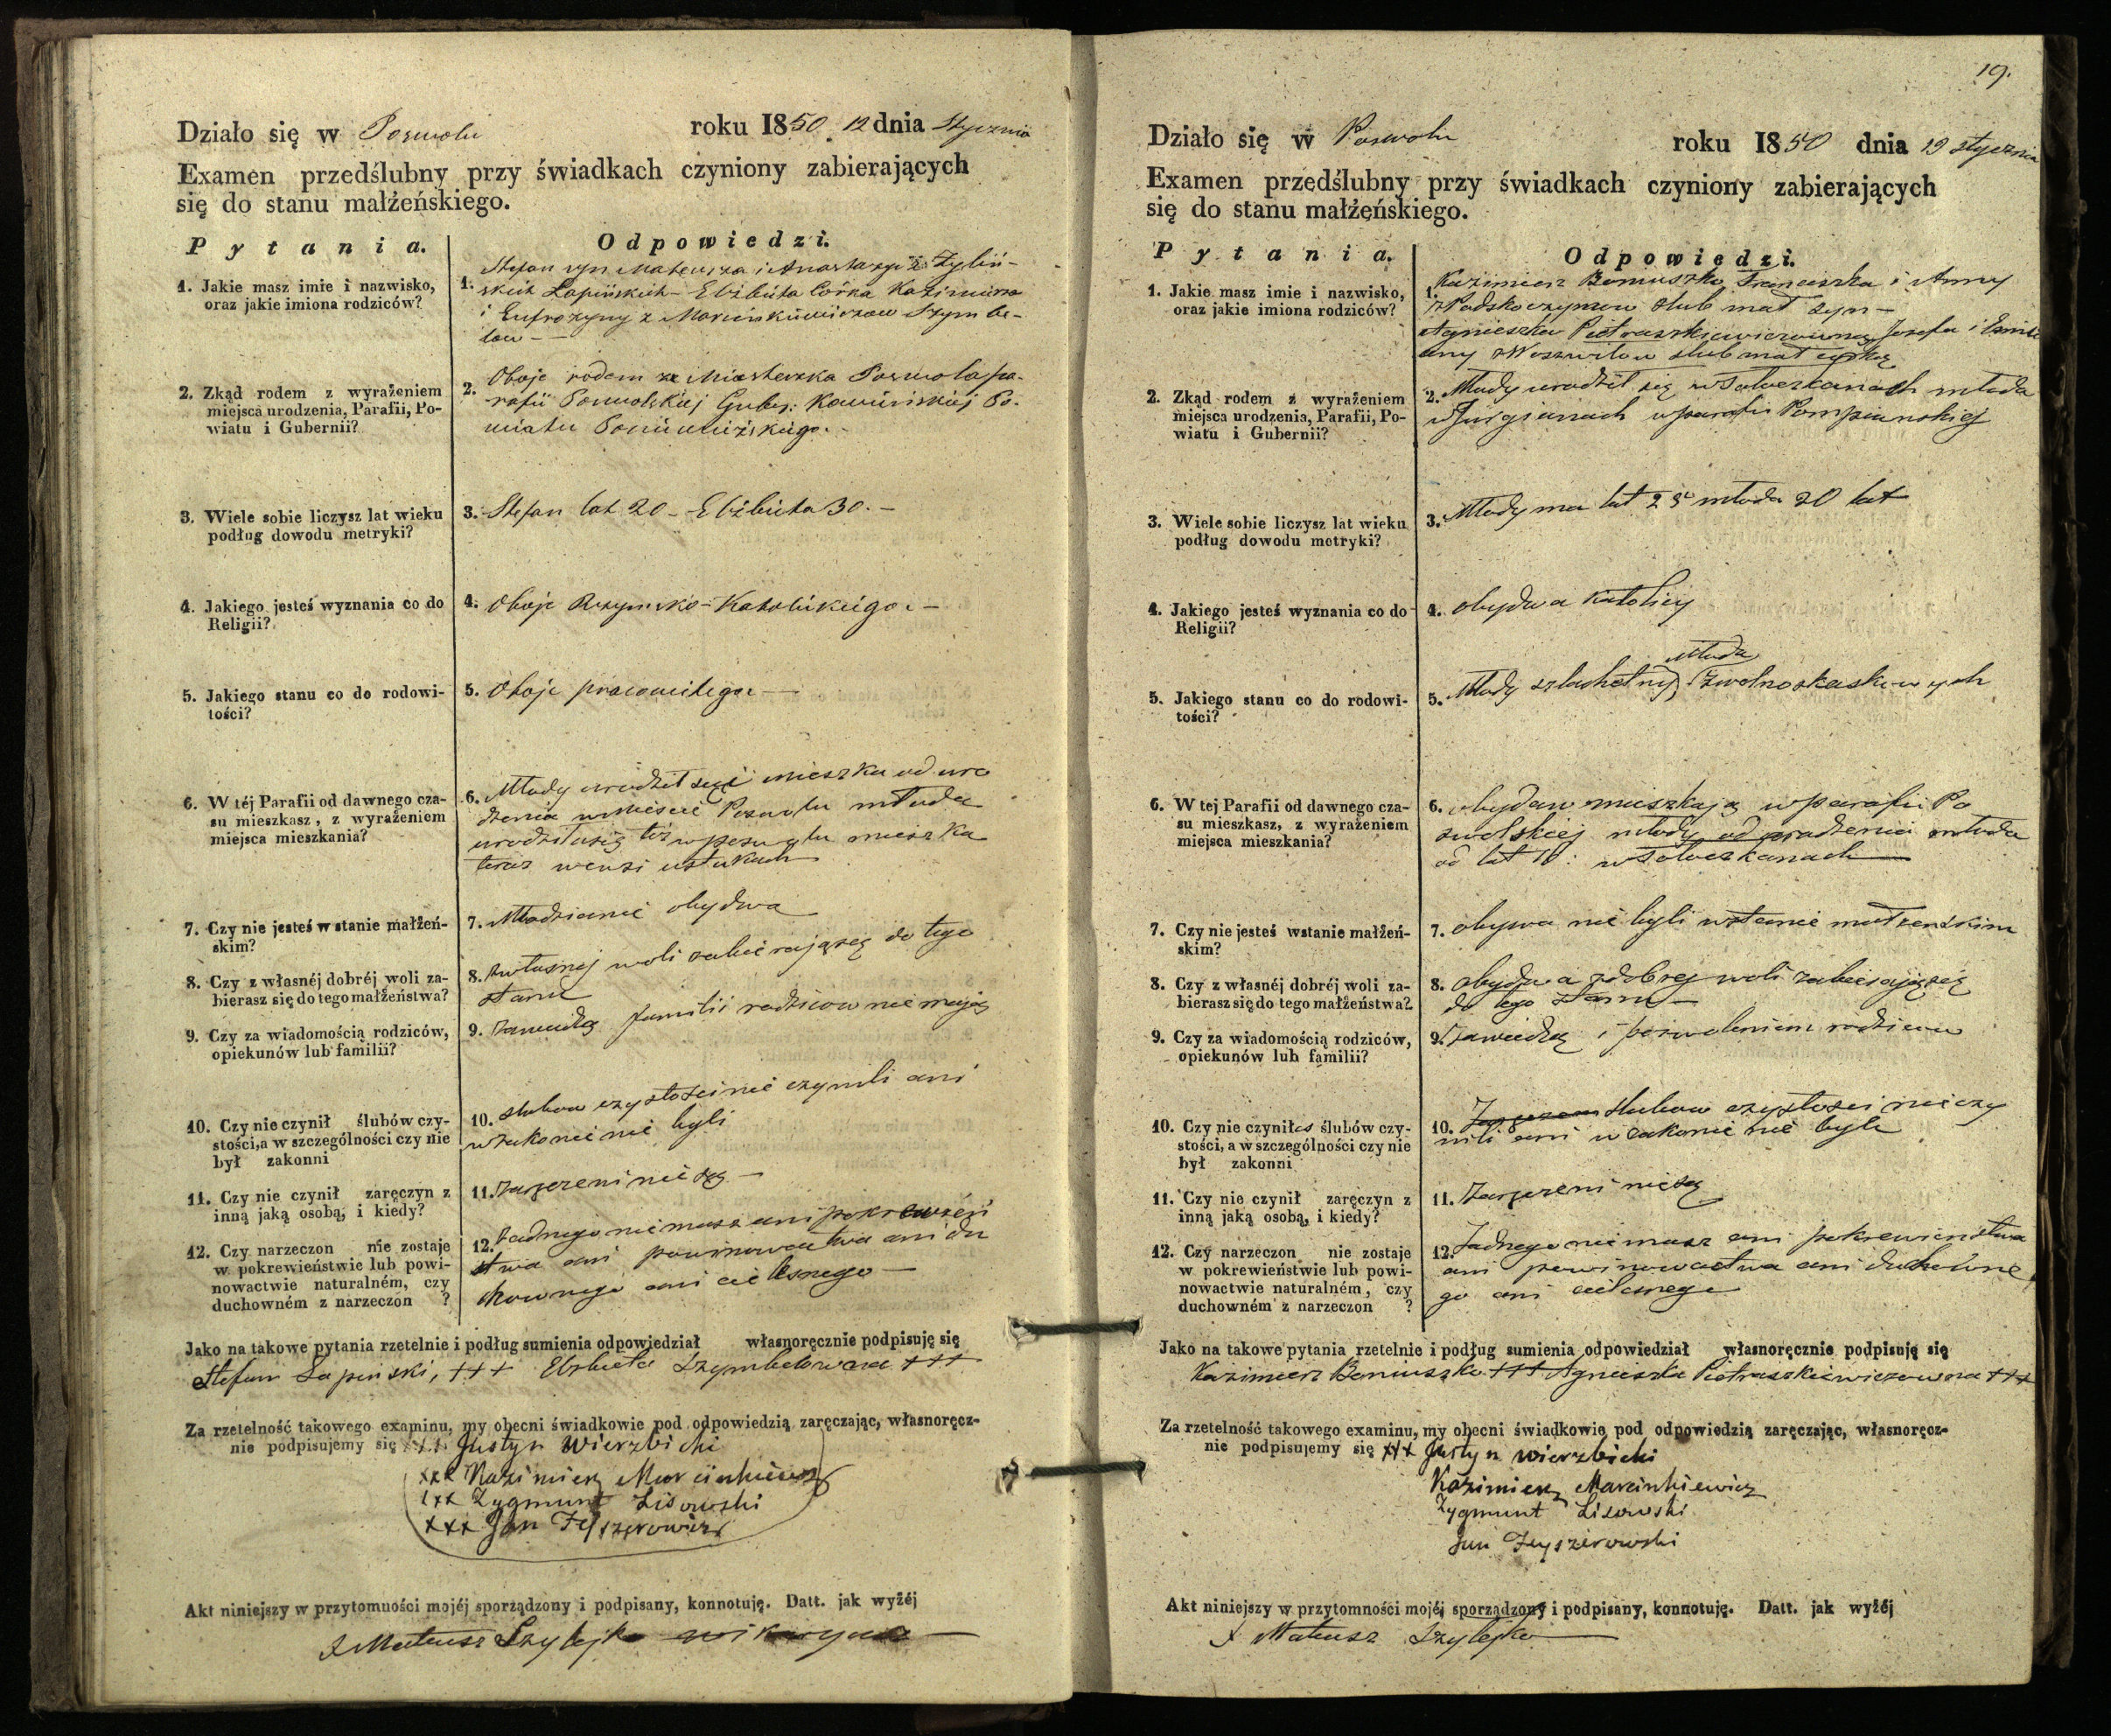 Działo się w Poswolu roku 1850 12 dnia Stycznia
Examen przedślubny przy świadkach czyniony zabierających
się do stanu małżeńskiego.
Pytania. Odpowiedzi.
1. Jakie masz imie i nazwisko,
oraz jakie imiona rodziców?
1. Stefan syn Mateusza i Anastazyi z Żyliń-
skich Łapińskich - Elżbieta Córka Kazimierza
i Eufrozyny z Marcinkiewiczow Szymbe-
low -
2. Zkąd rodem z wyrażeniem
miejsca urodzenia, Parafii, Po-
wiatu i Gubernii?
2. Oboje rodem ze Miasteczka Poswola pa-
rafii Poswolskiej Guber: Kowieńskiej Po-
wiatu Poniewieżskiego.
3. Wiele sobie liczysz lat wieku
podług dowodu metryki?
3. Stefan lat 20 - Elżbieta 30. -
4. Jakiego jesteś wyznania co do
Religii?
4. Oboje Rzymsko-Katolickiego. -
5. Jakiego stanu co do rodowi-
tości?
5. Oboje pracowitego. -
6. W téj Parafii od dawnego cza-
su mieszkasz, z wyrażeniem
miejsca mieszkania?
6. Młody urodził się i mieszka od uro
dzenia w mieście Poswolu młoda
urodziła się też w poswolu mieszka
teraz wewsi ustukach
7. Czy nie jesteś w stanie małżeń-
skim?
7. Młodzianie obydwa
8. Czy z własnéj dobréj woli za-
bierasz się do tego małżeństwa?
8. zwłasnej woli zabierająsię do tego
stanu
9. Czy za wiadomością rodziców,
opiekunów lub familii?
9. zawiedzą familii rodzicow nie mają
10. Czy nie czynił ślubów czy-
stości, a w szczególności czy nie
był zakonni
10. slubow czystości nie czynili ani
wzakonie nie byli
11. Czy nie czynił zaręczyn z
inną jaką osobą, i kiedy?
11. zaręczeni nie są -
12. Czy narzeczon nie zostaje
w pokrewieństwie lub powi-
nowactwie naturalném, czy
duchowném z narzeczon ?
12. żadnego niemasz ani pokrewień
stwa ani powinowactwa ani du
chownego ani cielesnego -
Jako na takowe pytania rzetelnie i podług sumienia odpowiedział własnoręcznie podpisuję się
Stefan Łapinski, +++ Elzbieta Szymbelowna +++
Za rzetelność takowego examinu, my obecni świadkowie pod odpowiedzią zaręczając, własnoręcz-
nie podpisujemy się xxx Justyn Wierzbicki
xxx Kazimierz Marcinkiewicz
xxx Zygmunt Lisowski
xxx Jan
Akt niniejszy w przytomności mojéj sporządzony i podpisany, konnotuję. Datt. jak wyżéj
X Mateusz Szylejko wikaryusz
19.
Działo się w Poswolu roku 1850 dnia 19 stycznia
Examen przedślubny przy świadkach czyniony zabierających
się do stanu małżeńskiego.
Pytania. Odpowiedzi.
1. Jakie masz imie i nazwisko,
oraz jakie imiona rodziców?
1. Kazimierz Beniuszko, Franciszka i Anny
slub mał syn -
Agnieszka Pietraszkiewiczowna, Jozefa i
slub mał córka
2. Zkąd rodem z wyrażeniem
miejsca urodzenia, Parafii, Po-
wiatu i Gubernii?
2. Młody urodził się młoda
w parafii Pompianskiej
3. Wiele sobie liczysz lat wieku
podług dowodu metryki?
3. Młody ma lat 25 młoda 20 lat
4. Jakiego jesteś wyznania co do
Religii?
4. obydwa katolicy
5. Jakiego stanu co do rodowi-
tości?
młoda
5. Młody szlachetny
6. W tej Parafii od dawnego cza-
su mieszkasz, z wyrażeniem
miejsca mieszkania?
6. obydwa mieszkają wparafii Po
swolskiej młody od uradzenia młoda
od lat 10:
7. Czy nie jesteś wstanie małżeń-
skim?
7. obywa nie byli wstanie małzenskim
8. Czy z własnéj dobréj woli za-
bierasz się do tego małżeństwa?
8. obydwa zdobrej woli zabierająsię
do tego stanu -
9. Czy za wiadomością rodziców,
opiekunów lub familii?
9. zawiedzą i pozwoleniem rodzicow
10. Czy nie czyniłes ślubów czy-
stości, a w szczególności czy nie
był zakonni
10. slubow czystosci nie czy
nili ani w zakonie nie byli
11. Czy nie czynił zaręczyn z
inną jaką osobą, i kiedy?
11. zaręczeni niesą
12. Czy narzeczon nie zostaje
w pokrewieństwie lub powi-
nowactwie naturalném, czy
duchowném z narzeczon ?
12. żadnego niemasz ani pokrewienstwa
ani powinowactwa ani duchowne
go ani cielesnego
Jako na takowe pytania rzetelnie i podług sumienia odpowiedział własnoręcznie podpisuję się
Kazimierz Beniuszko +++ Agnieszka Pietraszkiewiczowna +++
Za rzetelność takowego examinu, my obecni świadkowie pod odpowiedzią zaręczając, własnoręcz-
nie podpisujemy się xxx Justyn Wierzbicki
Kazimierz Marcinkiewicz
Zygmunt Lisowski
Jan
Akt niniejszy w przytomności mojéj sporządzony i podpisany, konnotuję. Datt. jak wyżéj
X Mateusz Szylejko